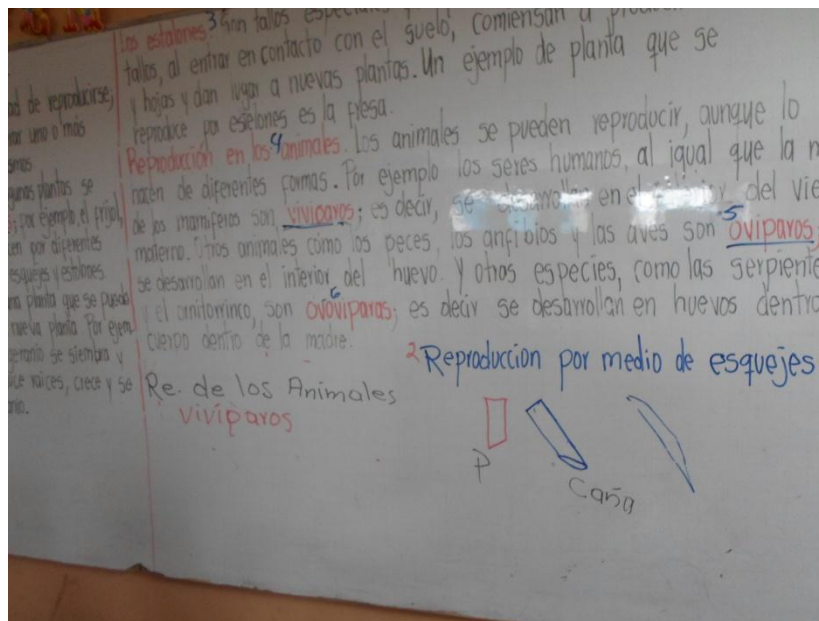 ad de reproducirse,
ar uno o más
smos.
gunas plantas se
por ejemplo, el frijol,
cen por diferentes
esquejes y estolones.
na planta que se pueda
nueva planta Por ejem
geranio se siembra y
ce raíces, crece y se
nio.
Los estalones 3 son tallos
tallos, al entrar en contacto con el suelo, comiensan a
y hojas y dan lugar a nuevas plantas. Un ejemplo de planta que se
reproduce por estelones es la fresa.
Reproducción en los 4 animales. Los animales se pueden reproducir, aunque lo
hacen de diferentes formas. Por ejemplo los seres humanos, al igual que la m
de los mamiferos son viviparos; es decir, se desarrollan en el interior del vie
materno. Otros animales como los peces, los anfibios y las aves son 5 oviparos;
se desarrollan en el interior del huevo. Y otras especies, como las serpiente
y el ornitorrinco, son 6 ovoviparos; es decir se desarrollan en huevos dentro
cuerpo dentro de la madre.
2 Reproduccion por medio de esquejes
Re. de los Animales
viviparos
P
Caña